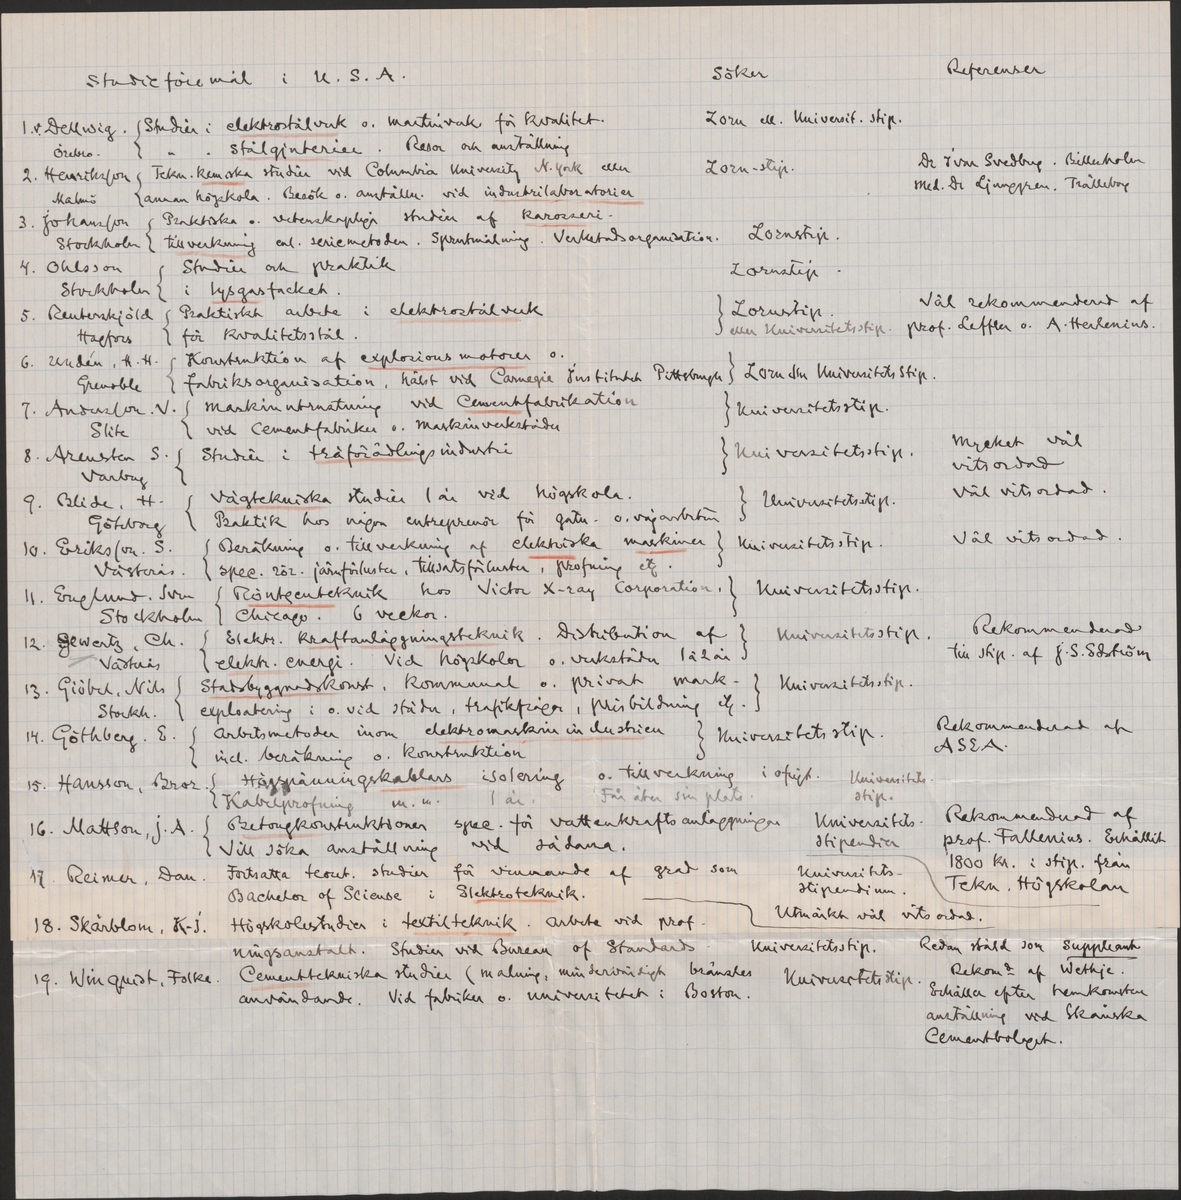 Studieföremål i U.S.A. Söker Referenser
1. v. Dellwig. Studier i elektrostålverk o. martinverk för kvalitet. Zorn ell. Universit. stip.
Örebro. " " stålgjuterier. Resor och anställning
2. Henriksson Tekn. kemiska studier vid Columbia University N.York eller Zorn-stip. Dr Ivar Svedberg. Billesholm
Malmö annan högskola. Besök o. anställn. vid industrilaboratorier Med. Dr Ljunggren. Trälleborg
3. Johansson Praktiska o. vetenskapliga studier af karosseri-
Stockholm tillverkning enl. seriemetoden. Sprutmålning. Verkstadsorganisation. Zornstip.
4. Ohlsson Studier och praktik Zornstip.
Stockholm i lysgasfacket.
5. Reuterskjöld Praktiskt arbete i elektrostålverk Zornstip. Väl rekommenderad af
Hagfors för kvalitetsstål. eller Universitetsstip. prof. Leffler o. A. Herlenius.
6. Undén, H.H. Konstruktion af explosionsmotorer o.
Grenoble fabriksorganisation, hälst vid Carnegie Institutet Pittsburgh Zorn Universitetsstip.
7. Andersson. V. Maskinutrustning vid Cementfabrikation Universitetsstip.
Slite vid Cementfabriker o. maskinverkstäder
8. Arensten S. Studier i träförädlingsindustri Universitetsstip. Mycket väl
Varberg vitsordad
9. Blide, H. Vägtekniska studier 1 år vid högskola. Universitetsstip. Väl vitsordad.
Göteborg Praktik hos någon entreprenör för gatu- o. vägarbeten
10. Eriksson. S. Beräkning o. tillverkning af elektriska maskiner Universitetsstip. Väl vitsordad.
Västerås. spec. rör. järnförluster, tillsatsförluster, profning etc.
11. Englund. Sven Röntgenteknik hos Victor X-ray Corporation, Universitetsstip.
Stockholm Chicago. 6 veckor.
12. Gewertz, Ch. Elektr. kraftanläggningsteknik. Distribution af Universitetsstip. Rekommenderad
Västerås elektr. energi. Vid högskolor o. verkstäder 1 à 2 år till stip. af J.S. Edström
13. Giöbel, Nils Stadsbyggnadskonst, kommunal o. privat mark- Universitetsstip.
Stockh. exploatering i o. vid städer, trafikfrågor, prisbildning etc.
14. Göthberg. E. Arbitsmetoder inom elektromaskinindustrien Universitetsstip. Rekommenderad af
incl. beräkning o. konstruktion ASEA.
15. Hansson, Bror. Högspänningskablars isolering o. tillverkning i öfrigt. Universitets-
Kabelprofning m.m. 1 år. Får åter sin plats. stip.
16. Mattson, J.A. Betongkonstruktioner spec. för vattenkraftsanläggningar Universitets- Rekommenderad af
Vill söka anställning vid sådana. stipendier prof. Fellenius. Erhållit
1800 kr. i stip. från
17. Reimer, Dan. Fortsatta teoret. studier för vinnande af grad som Universitets- Tekn. Högskolan
Bachelor of Sciense i Elektroteknik. stipendium.
Utmärkt väl vitsordad.
18. Skärblom, K-I. Högskolestudier i textilteknik. Arbete vid prof-
ningsanstalt. Studier vid Bureau of Standards Universitetsstip. Redan ställd som suppleant
19. Winquist, Folke. Cementtekniska studier (malning, mindervärdigt bränsles Universitetsstip. Rekom. af Wethje.
användande. Vid fabriker o. universitetet i Boston. Erhåller efter hemkomsten
anställning vid Skånska
Cementbolaget.